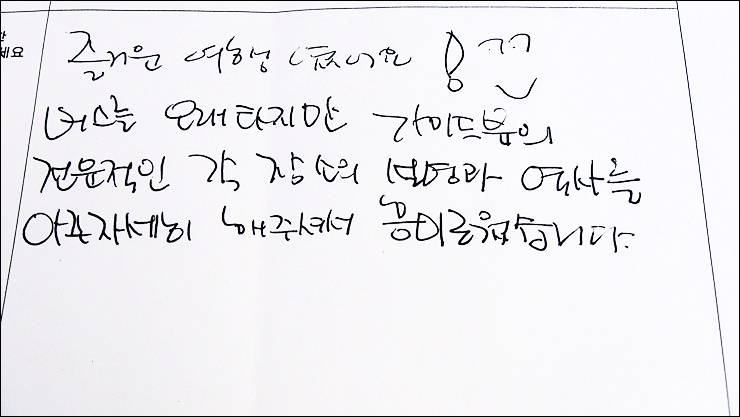 세요
즐거운 여행 이었어요
버스를 오래타지만 가이드분의
전문적인 각 장소의 설명과 역사를
아주자세히 해주셔서 흥미로웠습니다.